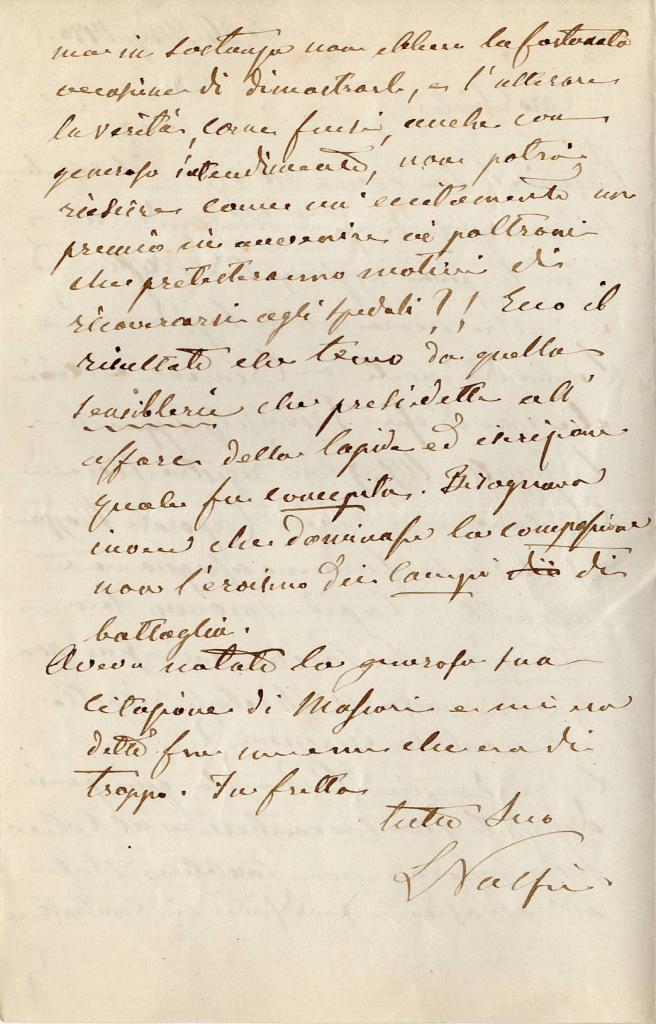 ma in sostanza non ebbero la fortunata
occasione di dimostrarlo, e l'alterare
la verità, come fursi, anche con
generoso intendimento, non potrà
riescire come un eccitamento un
premio in avvenire ai poltroni
che pretesteranno motivi di
ricoverarsi agli spedali?! Ecco il
risultato che temo da quella
sensiblerie che presiedette all'
affare della lapide ed iscrizione
quale fu concepita. Bisognava
invece che dominasse la compassione
non l'eroismo dei campi di
battaglia.
Aveva notato la generosa sua
citazione di Massari e mi era
detto fra me e me che era di
troppo. In fretta
tutto Suo
L